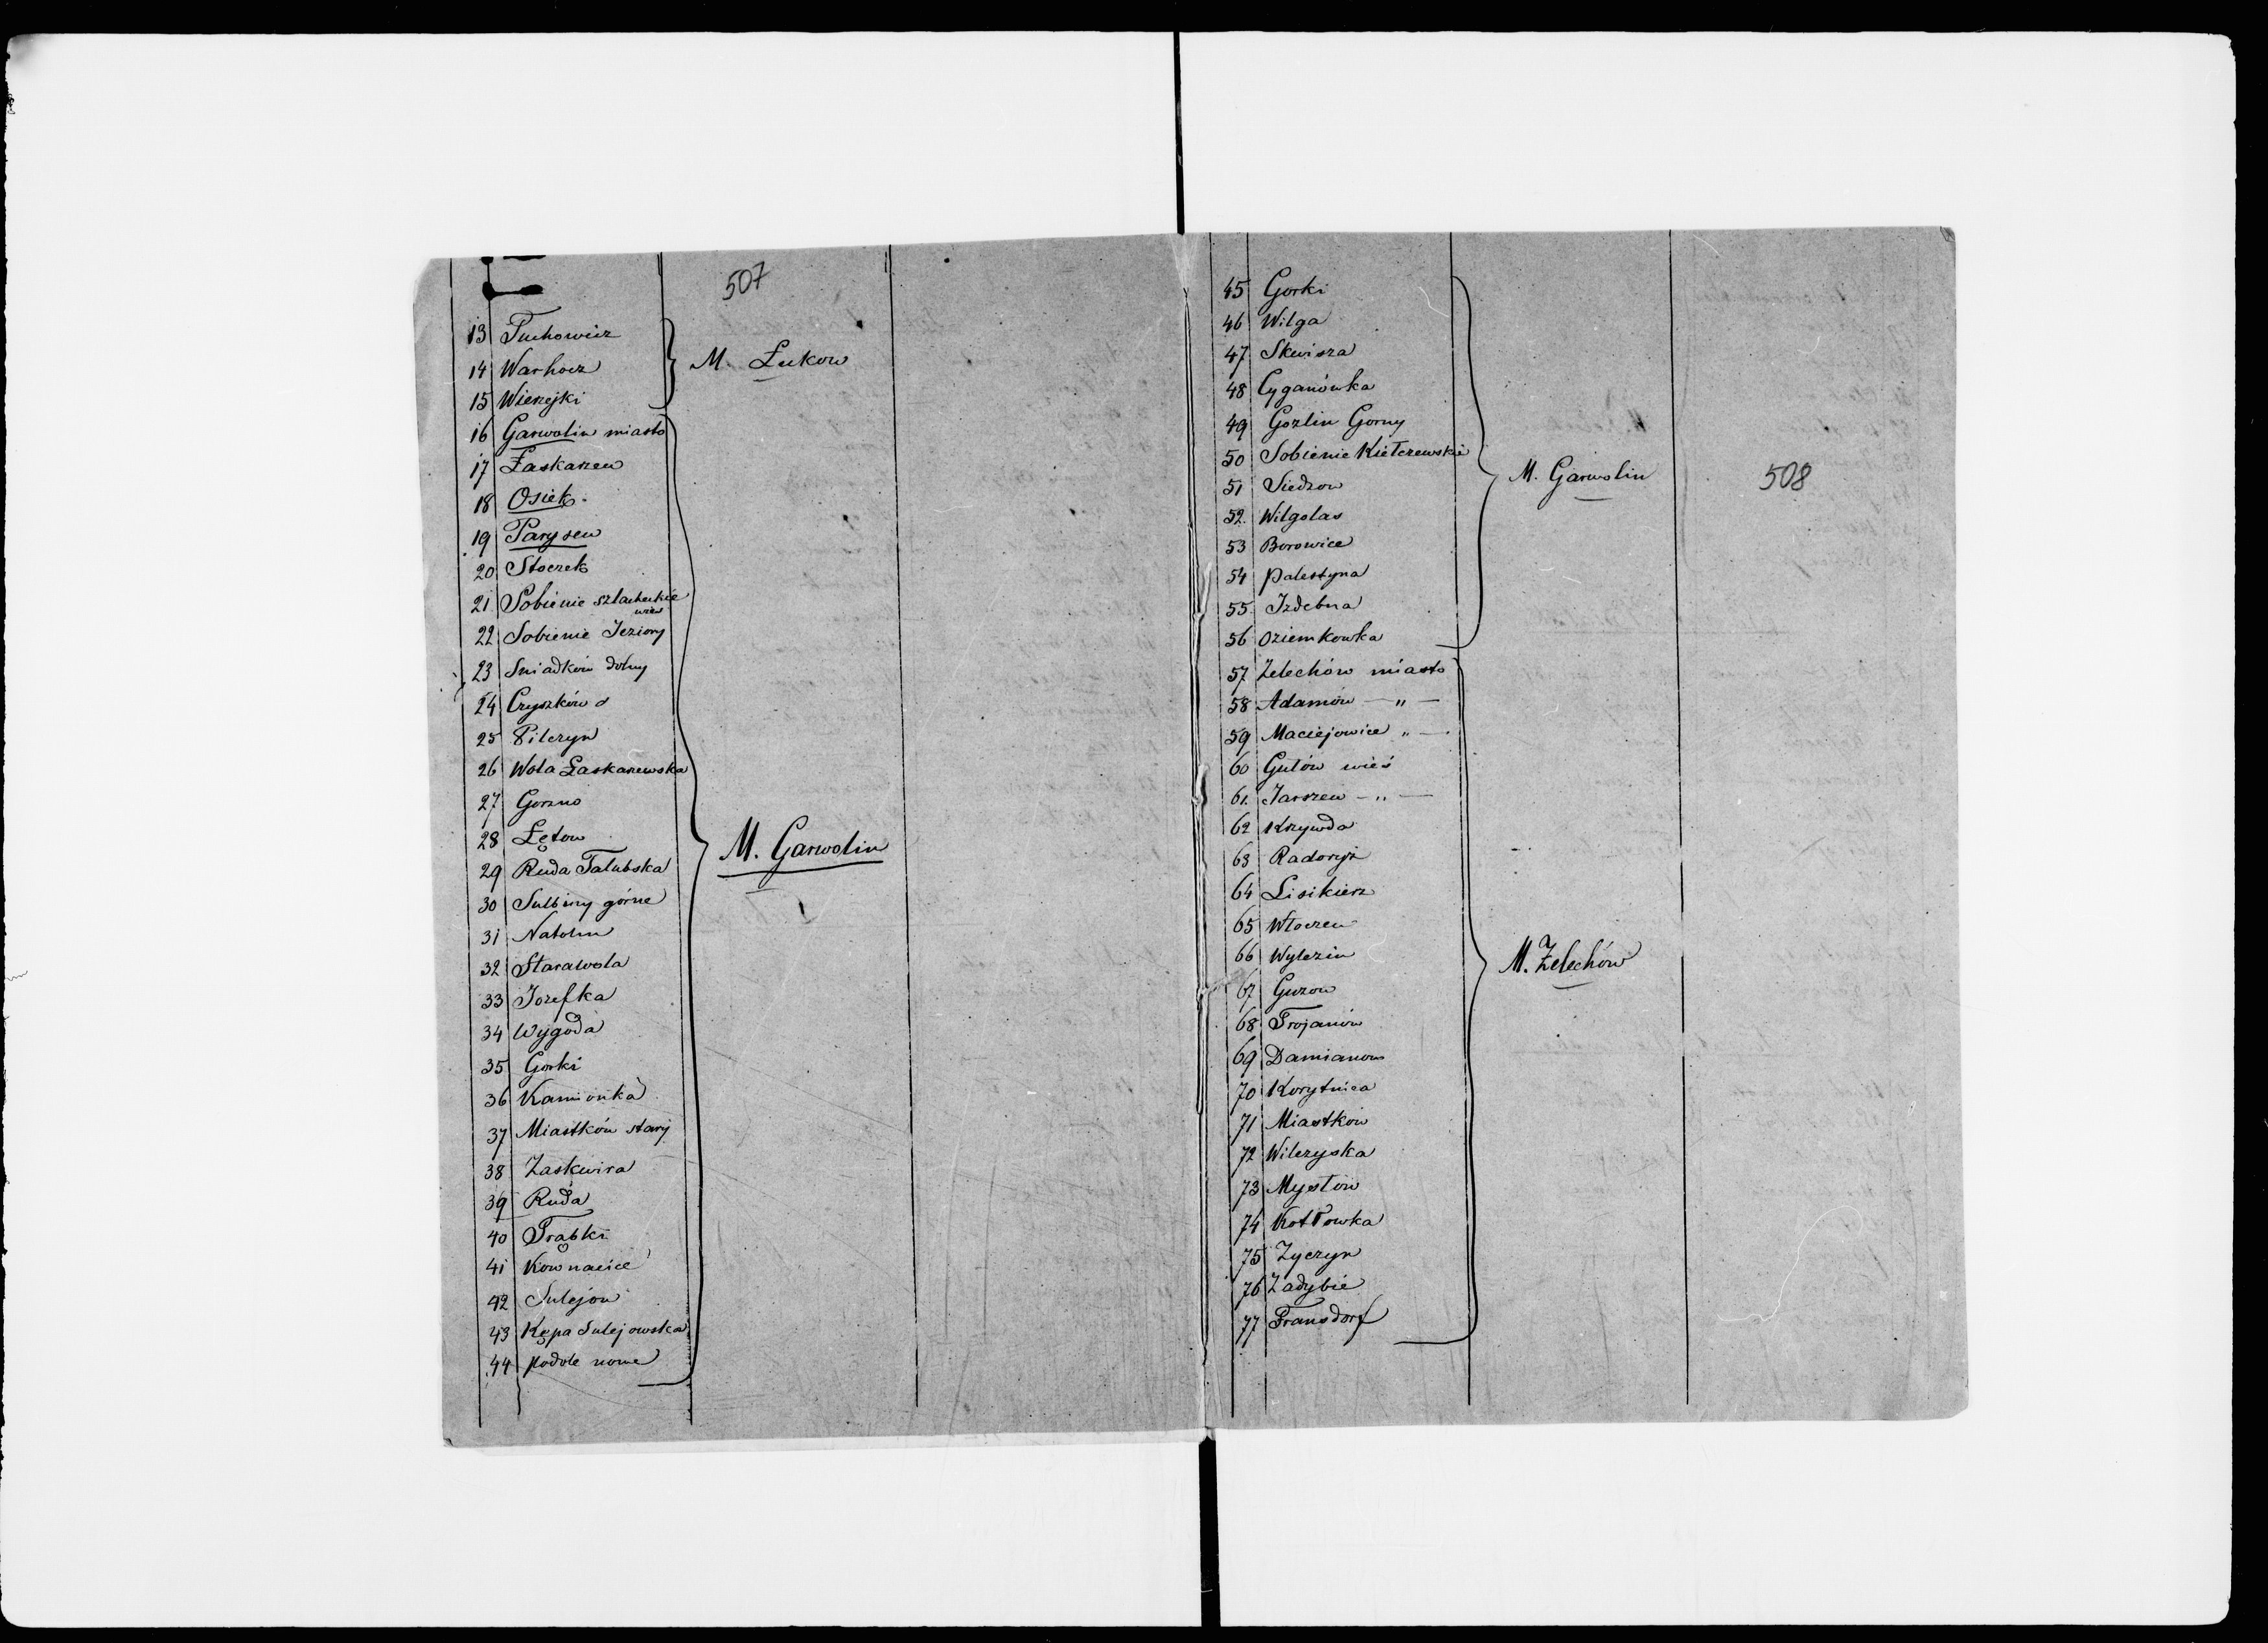 507
13 Tuchowicz
14 Warhocz
M. Łukow
15 Wierzejki
16 Garwolin miasto
17 Łaskarzew
18 Osiek
19 Parysew
20 Stoczek
21 Sobienie szlacheckie
wieś
22 Sobienie Jeziory
23 Sniadków dolny
24 Czyszków
25 Pilczyn
26 Wola Łaskarzewska
27 Gorzno
28 Łętow
M. Garwolin
29 Ruda Talubska
30 Sulbiny górne
31 Natolin
32 Starawola
33 Jozefka
34 Wygoda
35 Gorki
36 Kamionka
37 Miastków stary
38 Zaskwira
39 Ruda
40 Trąbki
41 Kownacice
42 Sulejow
43 Kępa Sulejowska
44 podole nowe
45 Gorki
46 Wilga
47 Skwirza
48 Cyganówka
49 Gozlin Gorny
50 Sobienie Kiełczewskie
M. Garwolin
508
51 Siedzow
52. Wilgolas
53 Borowice
54 palestyna
55 Izdebna
56 Oziemkowka
57 Zelechów miasto
58 Adamów — " —
59 Maciejowice " —
60 Gułów wieś
61. Jarszew — " —
62 Krzywda
63 Radoryż
64 Lisikierz
65 Włoczew
66 Wylezin
M. Zelechów
67 Guzow
68 Trojanów
69 Damianow
70 Korytnica
71 Miastków
72 Wilczyska
73 Mysłów
74 Kotłowka
75 Zyczyn
76 Zadybie
77 Fransdorf